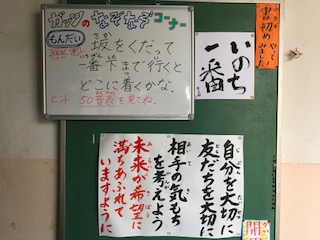 ガッツのなぞなぞコーナー
もんだい
坂をくだって
さか
一番下まで行くと
どこに着くかな。
ヒント 50音表を見てね。
書初め やってみました!
いのち
一番
自分を大切に
友だちを大切に
相手の気もちを考えよう
未来が希望に
満ちあふれて
いますように